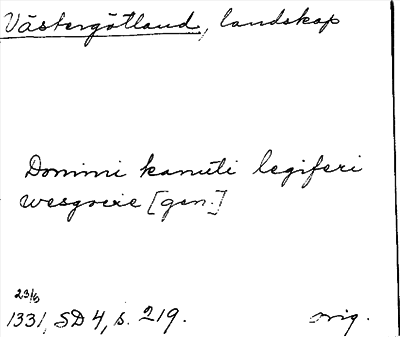 Västergötland, landskap
Domini kanuti legiferi
wesgocie [gen.]
23/6
1331, SD 4, s. 219.
orig.